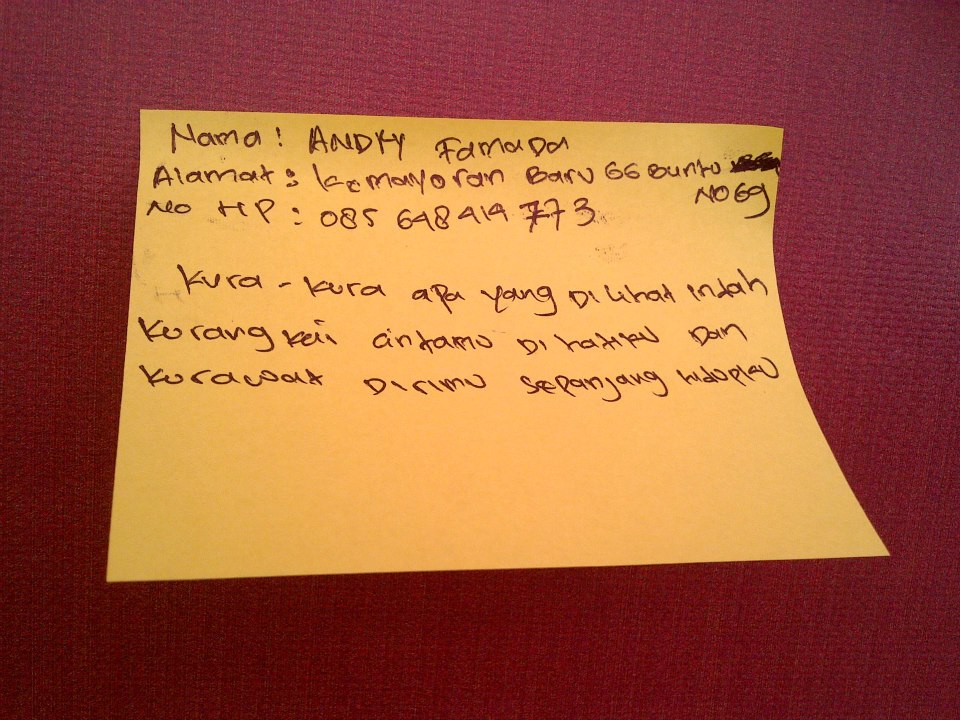 Nama : ANDHY FamaDa
Alamat : Kemayoran Baru GG Buntu
NO 69
No HP : 085 648 414 773
Kura - Kura apa yang Dilihat indah
Kurangkai cintamu Dihatiku Dan
Kurawat Dirimu sepanjang hidupku